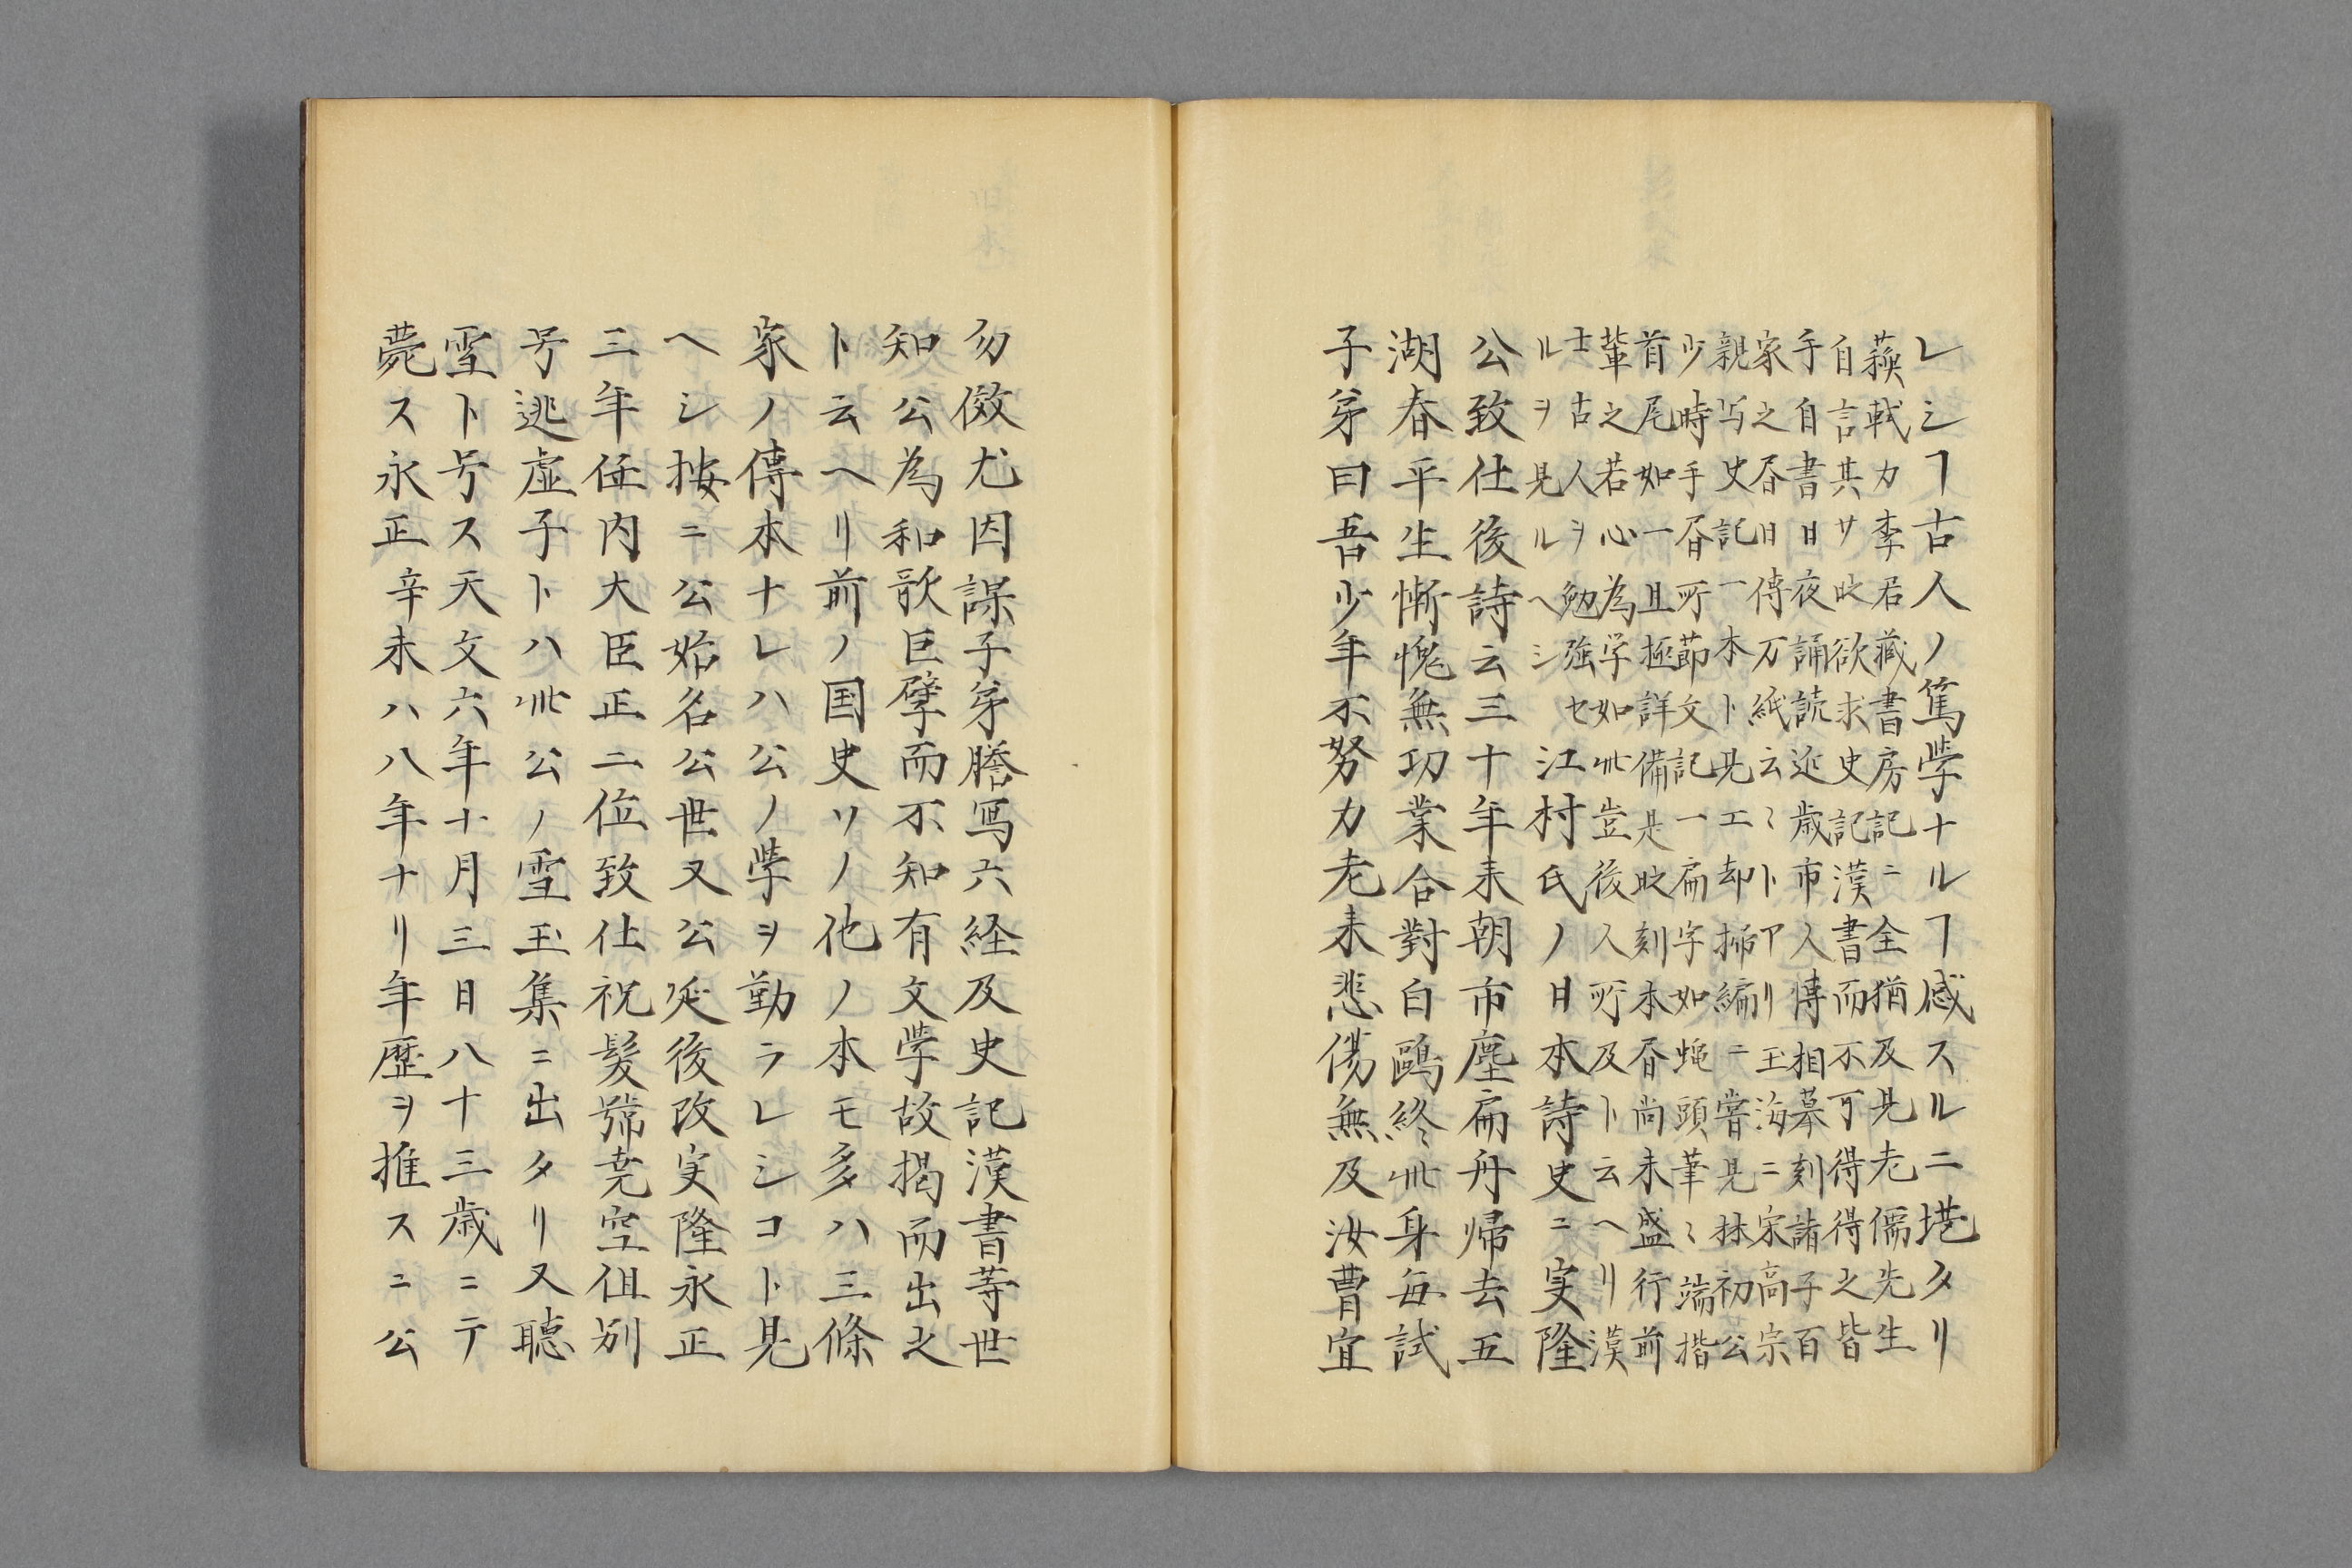 レシヿ古人ノ篤学ナルヿ感スルニ堪タリ
蘓軾カ李君蔵書房記ニ全猶及見老儒先生
自言其少时欲求史記漢書而不可得得之皆
手自書日夜誦読近歳市人博相摹刻諸子百
家之昏日傳万紙云〻トアリ玉海ニ宋高宗
親写史記一本ト見エ却掃編ニ嘗見林初公
少時手昏所節文記一扁字如蝿頭筆〻端揩
首尾如一且極詳備是时刻本昏尚未盛行前
輩之若心為学如此豈後人所及ト云ヘリ漢
士古人ヲ勉強セ
ルヲ見ルヘシ 江村氏ノ日本詩史ニ実隆
公致仕後詩云三十年来朝市塵扁舟帰去五
湖春平生慚愧無功業合對白鷗終此身毎試
子弟曰吾少年不努力老来悲傷無及汝曹宜
勿傚尤因謀子弟謄写六経及史記漢書等世
知公為和歌巨擘而不知有文学故掲而出之
ト云ヘリ前ノ国史リノ他ノ本モ多ハ三條
家ノ傳本ナレハ公ノ学ヲ勤ラレシコト見
ヘシ按ニ公始名公世又公延後改実隆永正
三年任内大臣正二位致仕祝髪號尭空但別
号逃虚子トハ此公ノ雪玉集ニ出タリ又聴
雪ト号ス天文六年十月三日八十三歳ニテ
薨ス永正辛未ハ八年ナリ年歴ヲ推スニ公